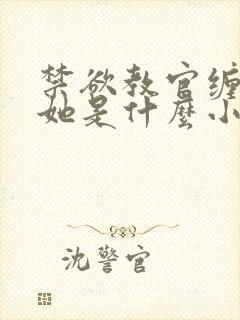 禁欲教官缠
她是什麼小
沈警官